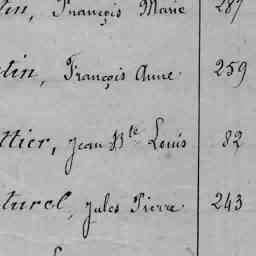 tin, François Marie 287
tin, François Anne 259
ttier, Jean Bte Louis 82
turel, Jules Pierre 243